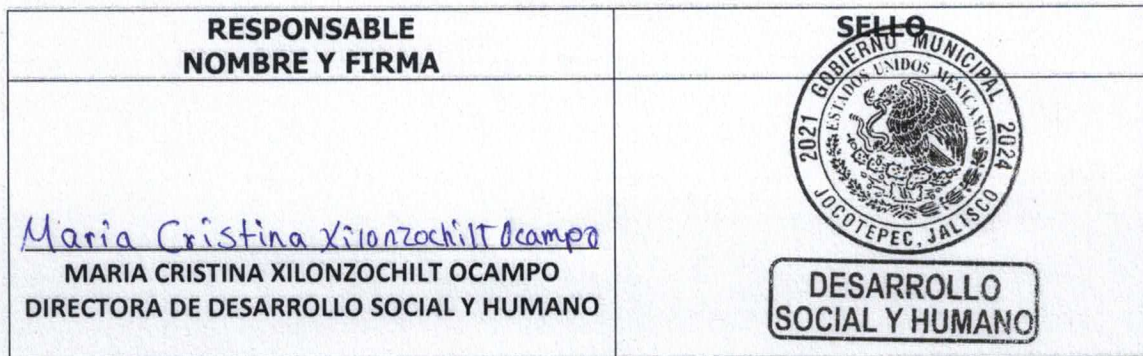 RESPONSABLE
NOMBRE Y FIRMA
Maria Cristina Xilonzochilt Ocampo
MARIA CRISTINA XILONZOCHILT OCAMPO
DIRECTORA DE DESARROLLO SOCIAL Y HUMANO
SELLO
2021 GOBIERNO MUNICIPAL 2024
ESTADOS UNIDOS MEXICANOS
JOCOTEPEC, JALISCO
DESARROLLO
SOCIAL Y HUMANO